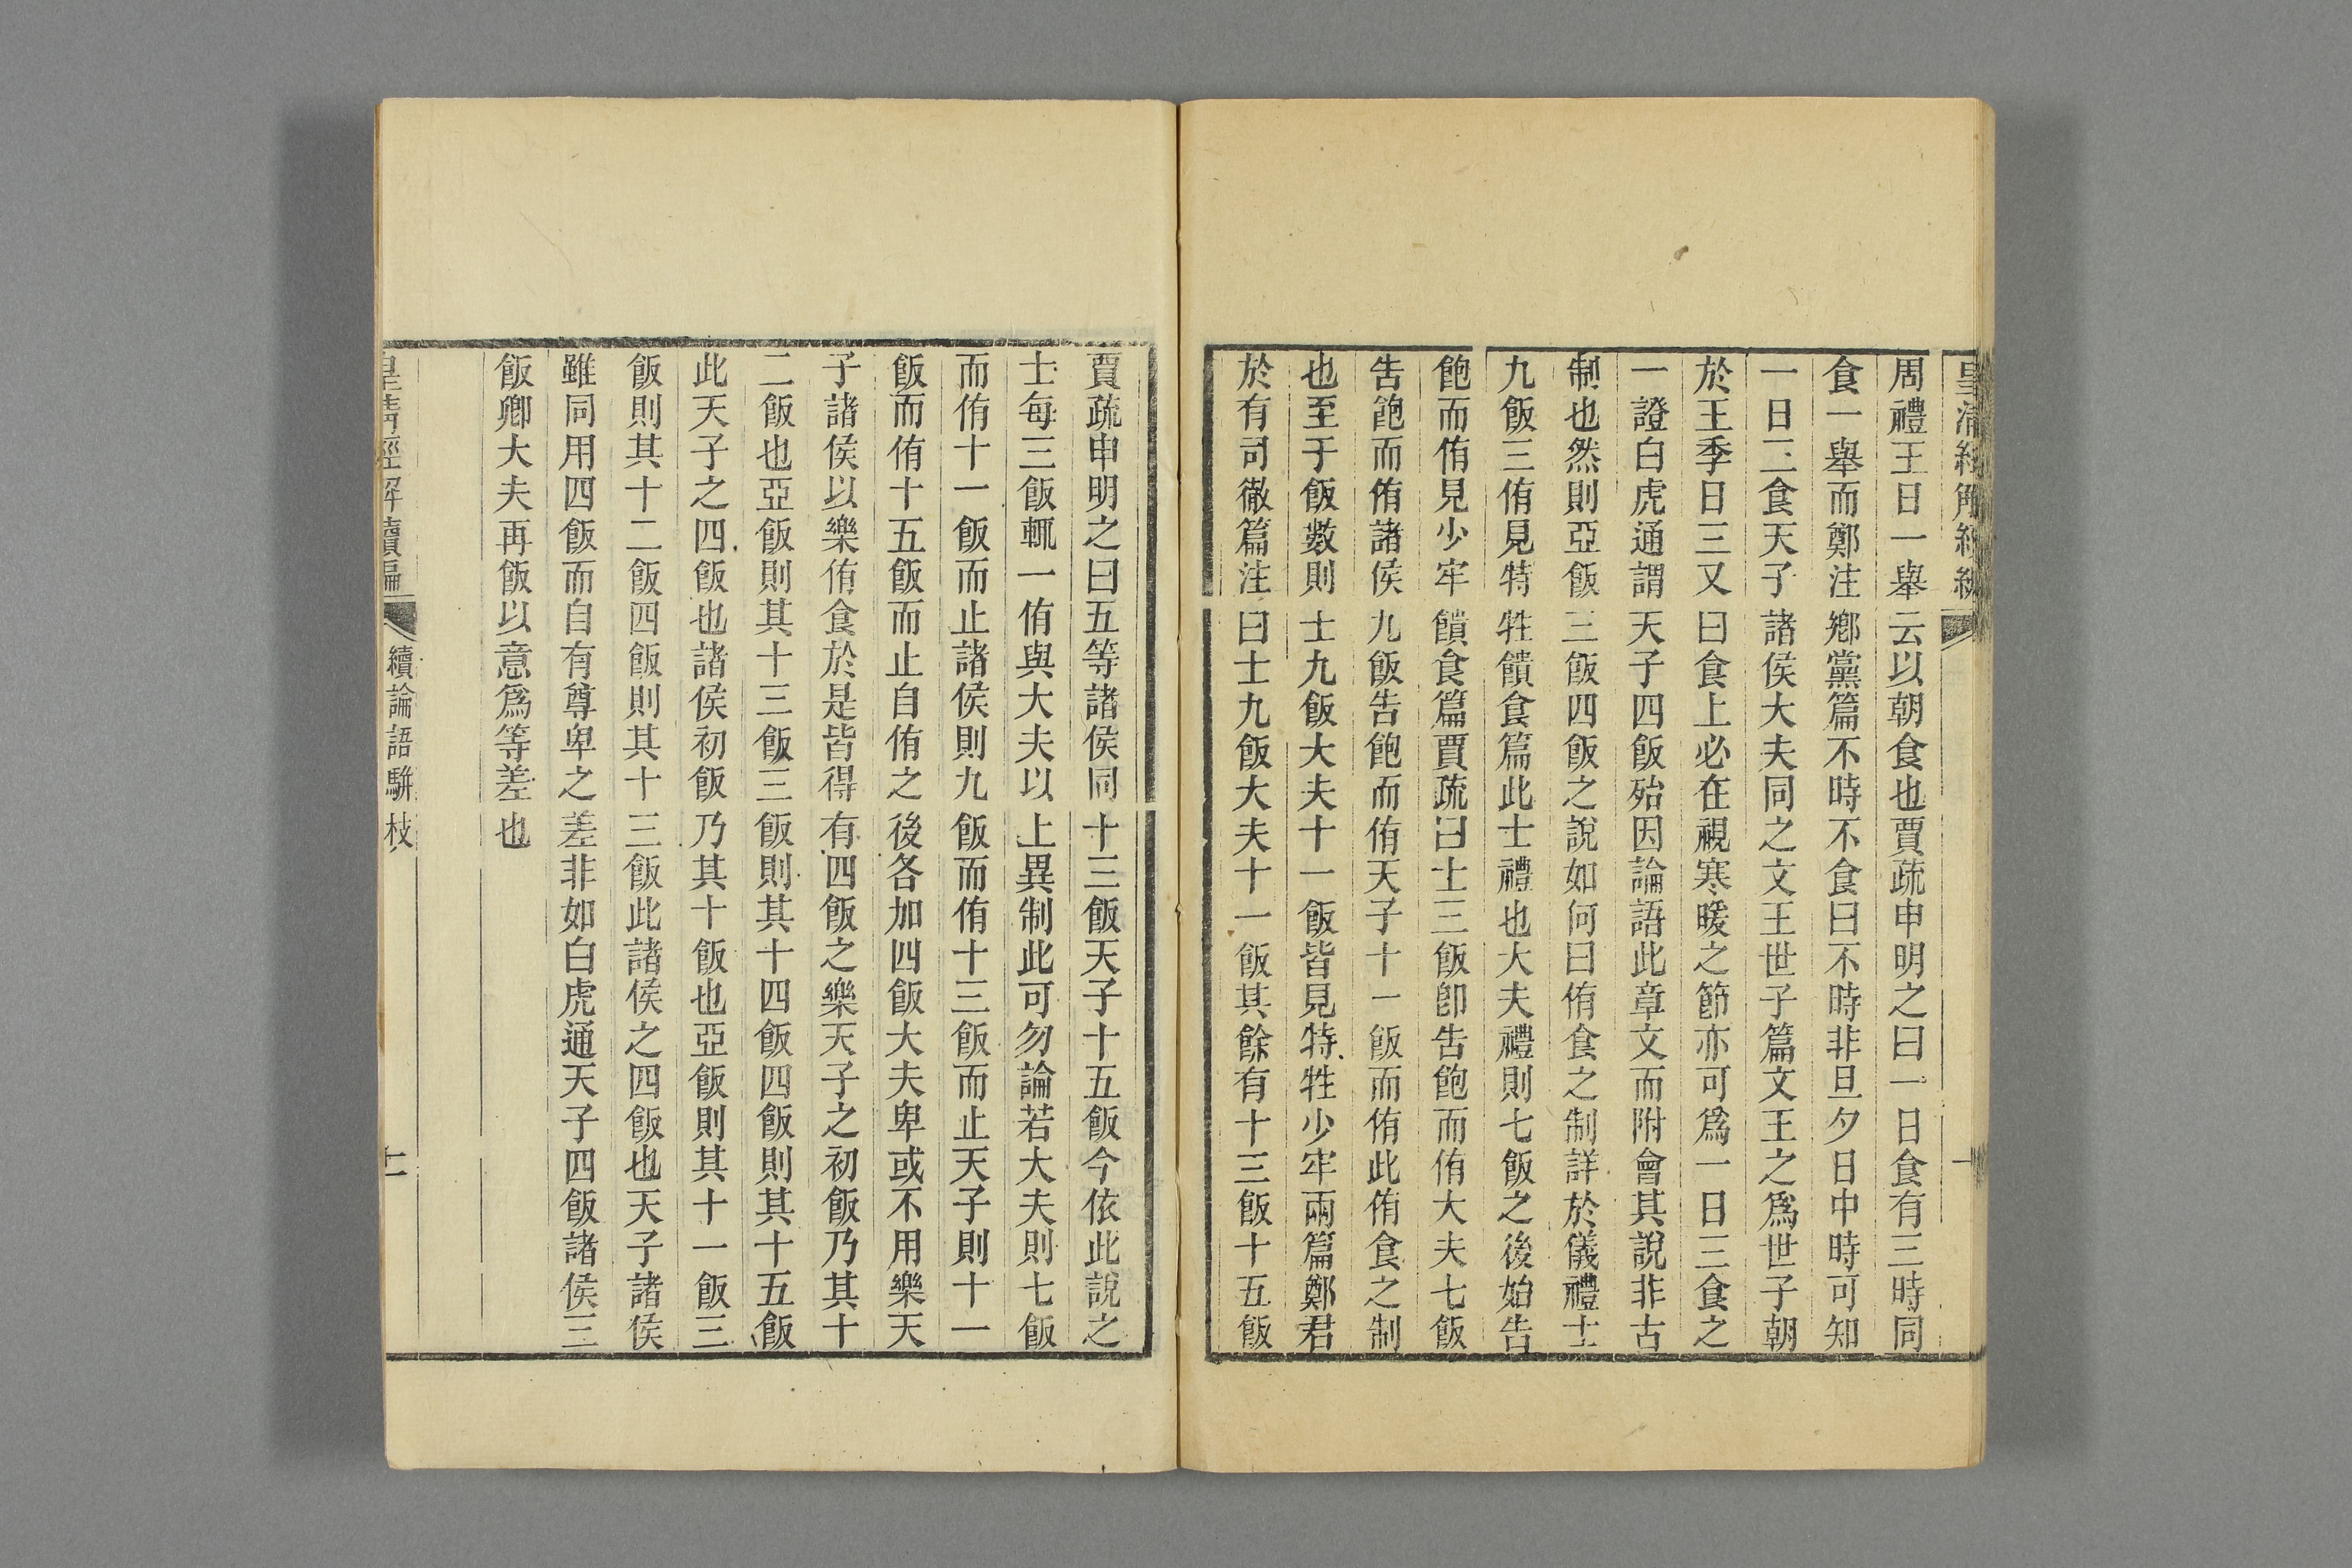 周禮王日一舉云以朝食也賈疏申明之曰一日食有三時同
食一舉而鄭注鄉黨篇不時不食曰不時非旦夕日中時可知
一日三食天子諸侯大夫同之文王世子篇文王之爲世子朝
於王季日三又曰食上必在視寒暖之節亦可爲一日三食之
一證白虎通謂天子四飯殆因論語此章文而附會其說非古
制也然則亞飯三飯四飯之說如何曰侑食之制詳於儀禮士
九飯三侑見特牲饋食篇此士禮也大夫禮則七飯之後始告
飽而侑見少牢饋食篇賈疏曰士三飯卽告飽而侑大夫七飯
告飽而侑諸侯九飯告飽而侑天子十一飯而侑此侑食之制
也至于飯數則士九飯大夫十一飯皆見特牲少牢兩篇鄭君
於有司徹篇注曰士九飯大夫十一飯其餘有十三飯十五飯
賈疏申明之曰五等諸侯同十三飯天子十五飯今依此說之
士每三飯輒一侑與大夫以上異制此可勿論若大夫則七飯
而侑十一飯而止諸侯則九飯而侑十三飯而止天子則十一
飯而侑十五飯而止自侑之後各加四飯大夫卑或不用樂天
子諸侯以樂侑食於是皆得有四飯之樂天子之初飯乃其十
二飯也亞飯則其十三飯三飯則其十四飯四飯則其十五飯
此天子之四飯也諸侯初飯乃其十飯也亞飯則其十一飯三
飯則其十二飯四飯則其十三飯此諸侯之四飯也天子諸侯
雖同用四飯而自有尊卑之差非如白虎通天子四飯諸侯三
飯卿大夫再飯以意爲等差也
皇清經解續編
續論語駢枝